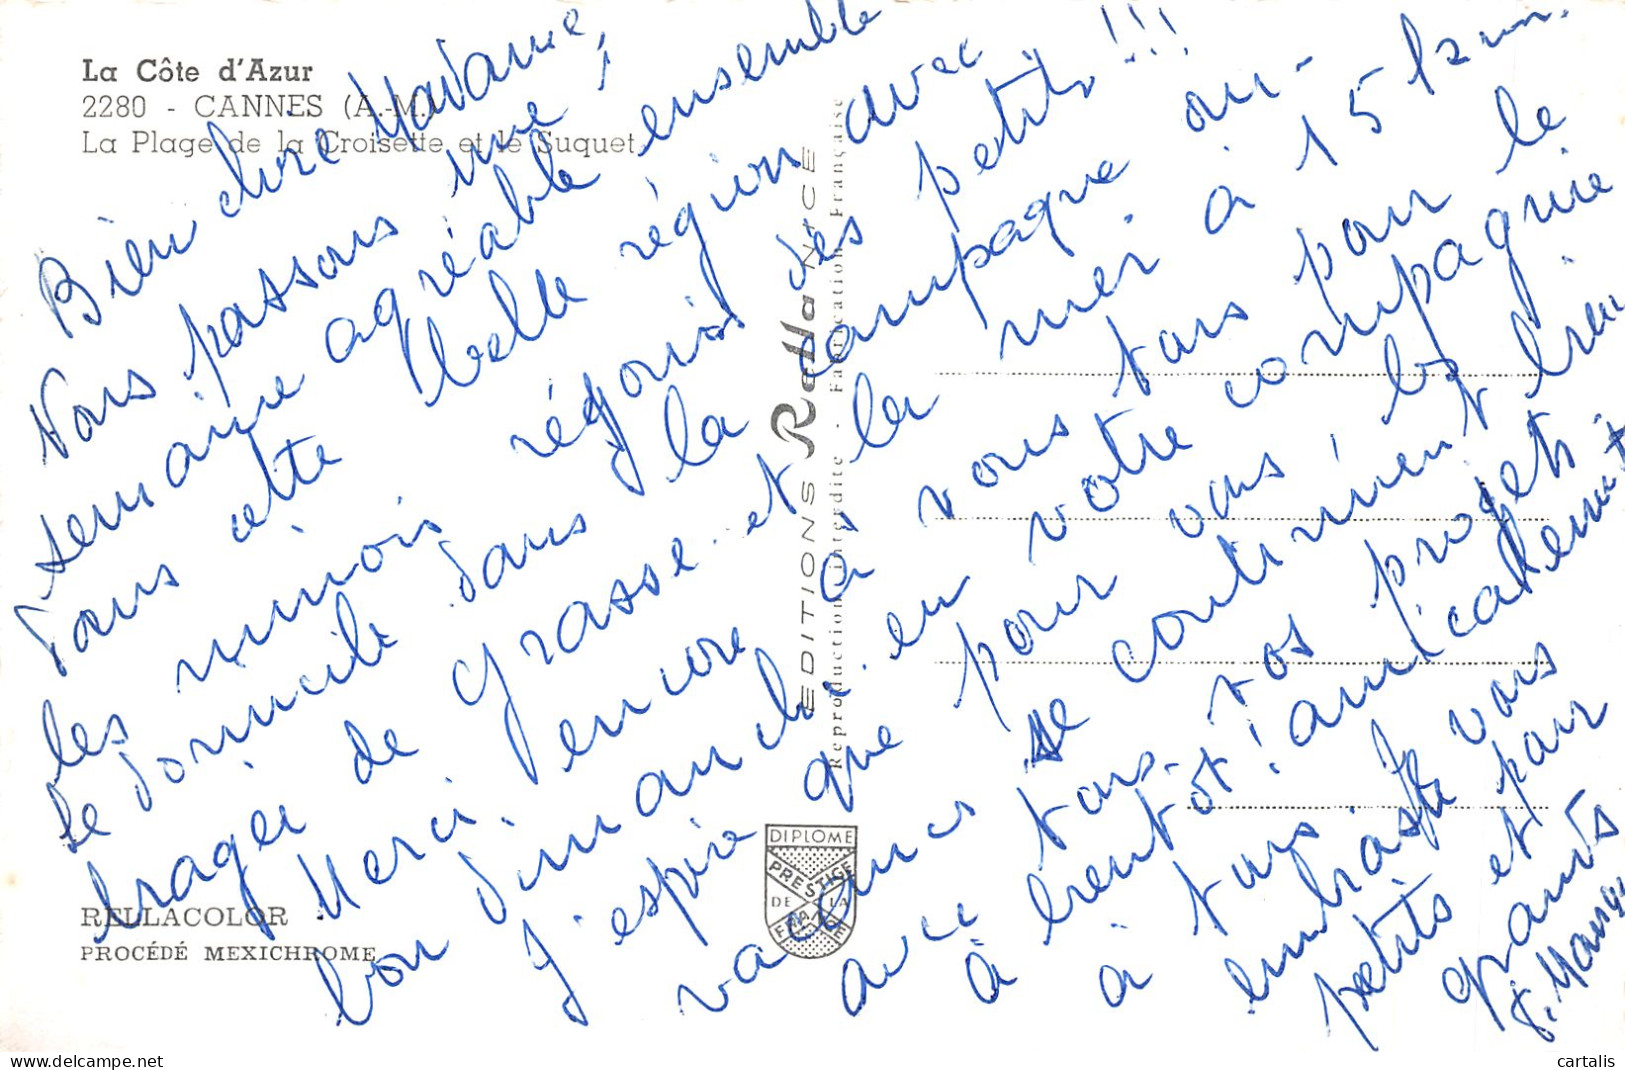 La Côte d'Azur
2280 - CANNES (A.-M.)
La Plage de la Croisette et le Suquet
Bien chère Madame,
Nous passons une
semaine agréable ensemble
dans cette belle région avec
les minois réjouis des petits !!!
Le domicile dans la campagne au-
de Grasse et la mer à 15 km.
Merci encore à vous tous pour le
bon dimanche en votre compagnie
J'espère que pour vous ! les
vacances se continuent bien
avec tous vos projets
à bientôt ! amicalement
à tous
embrasse vous
petits et par
grands
EDITIONS Rella NICE
Reproduction interdite - Fabrication Française
DIPLOME
PRESTIGE
DE LA
FRANCE
RELLACOLOR
PROCÉDÉ MEXICHROME
www.delcampe.net
cartalis